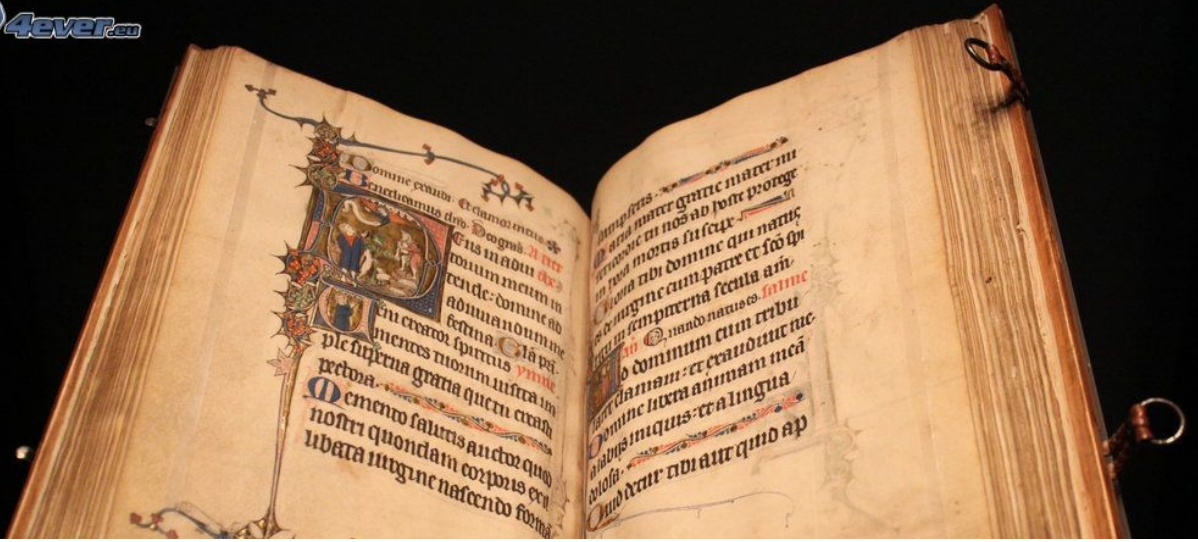 4ever.eu
Domine exaudi. Et clamor meus
Benedicamus dno. Deo gras. A tier
Eus in adiu
torium meum in
tende: domine ad
adiuuandum me
festina. Gla pa
eni creator spiritus ymne
mentes tuorum uisita im
ple superna gratia que tu creasti
pectora.
Memento salutis auctor quod
nostri quondam corporis ex il
libata uirgine nascendo formā
sumpseris.
aria mater gratie mater mi
sericordie tu nos ab hoste protege
in hora mortis suscipe
Gloria tibi domine qui natus
es de uirgine cum patre et sco spi
ritu in sempiterna secula am̄.
an Quando natus es. salme
d dominum cum tribu
larer clamaui: et exaudiuit me.
Domine libera animam meā
a labijs iniquis: et a lingua
dolosa.
Quid detur tibi aut quid ap